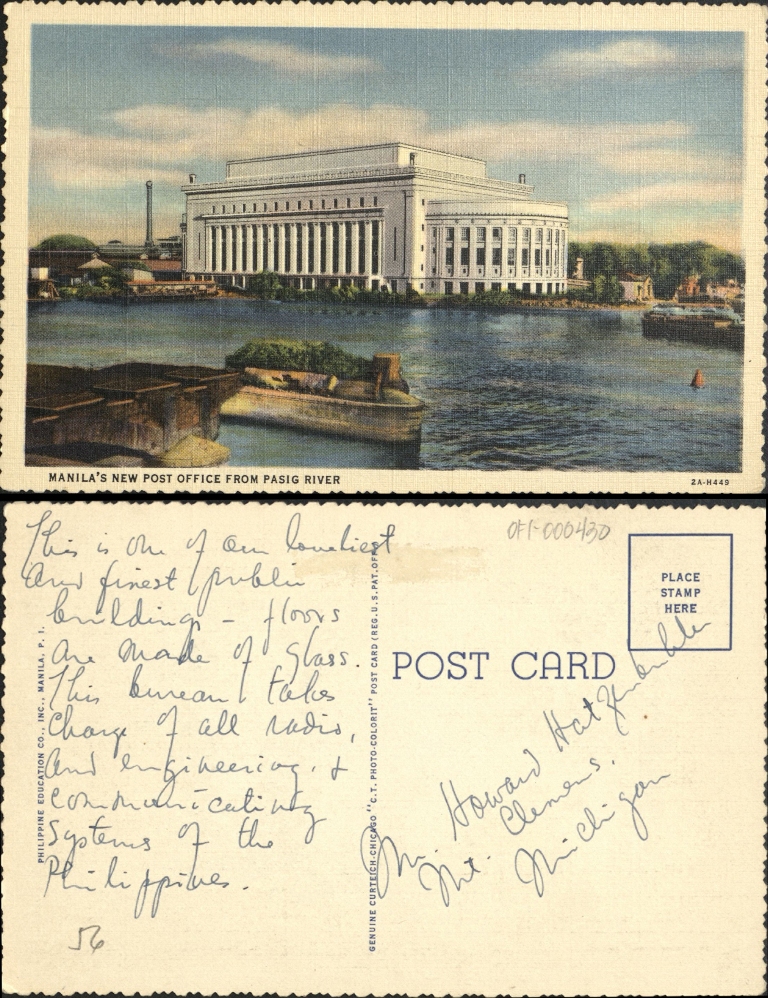 MANILA'S NEW POST OFFICE FROM PASIG RIVER
2A-H449
This is one of our loveliest
and finest public
buildings - floors
are made of glass.
This bureau takes
charge of all radio,
and engineering &
communicating
systems of the
Philippines.
56
PHILIPPINE EDUCATION CO., INC., MANILA, P. I.
GENUINE CURTEICH-CHICAGO "C.T. PHOTO-COLORIT" POST CARD (REG. U.S. PAT. OFF.)
OFF-000430
PLACE
STAMP
HERE
POST CARD
Mr. Howard
Mt. Clemens,
Michigan